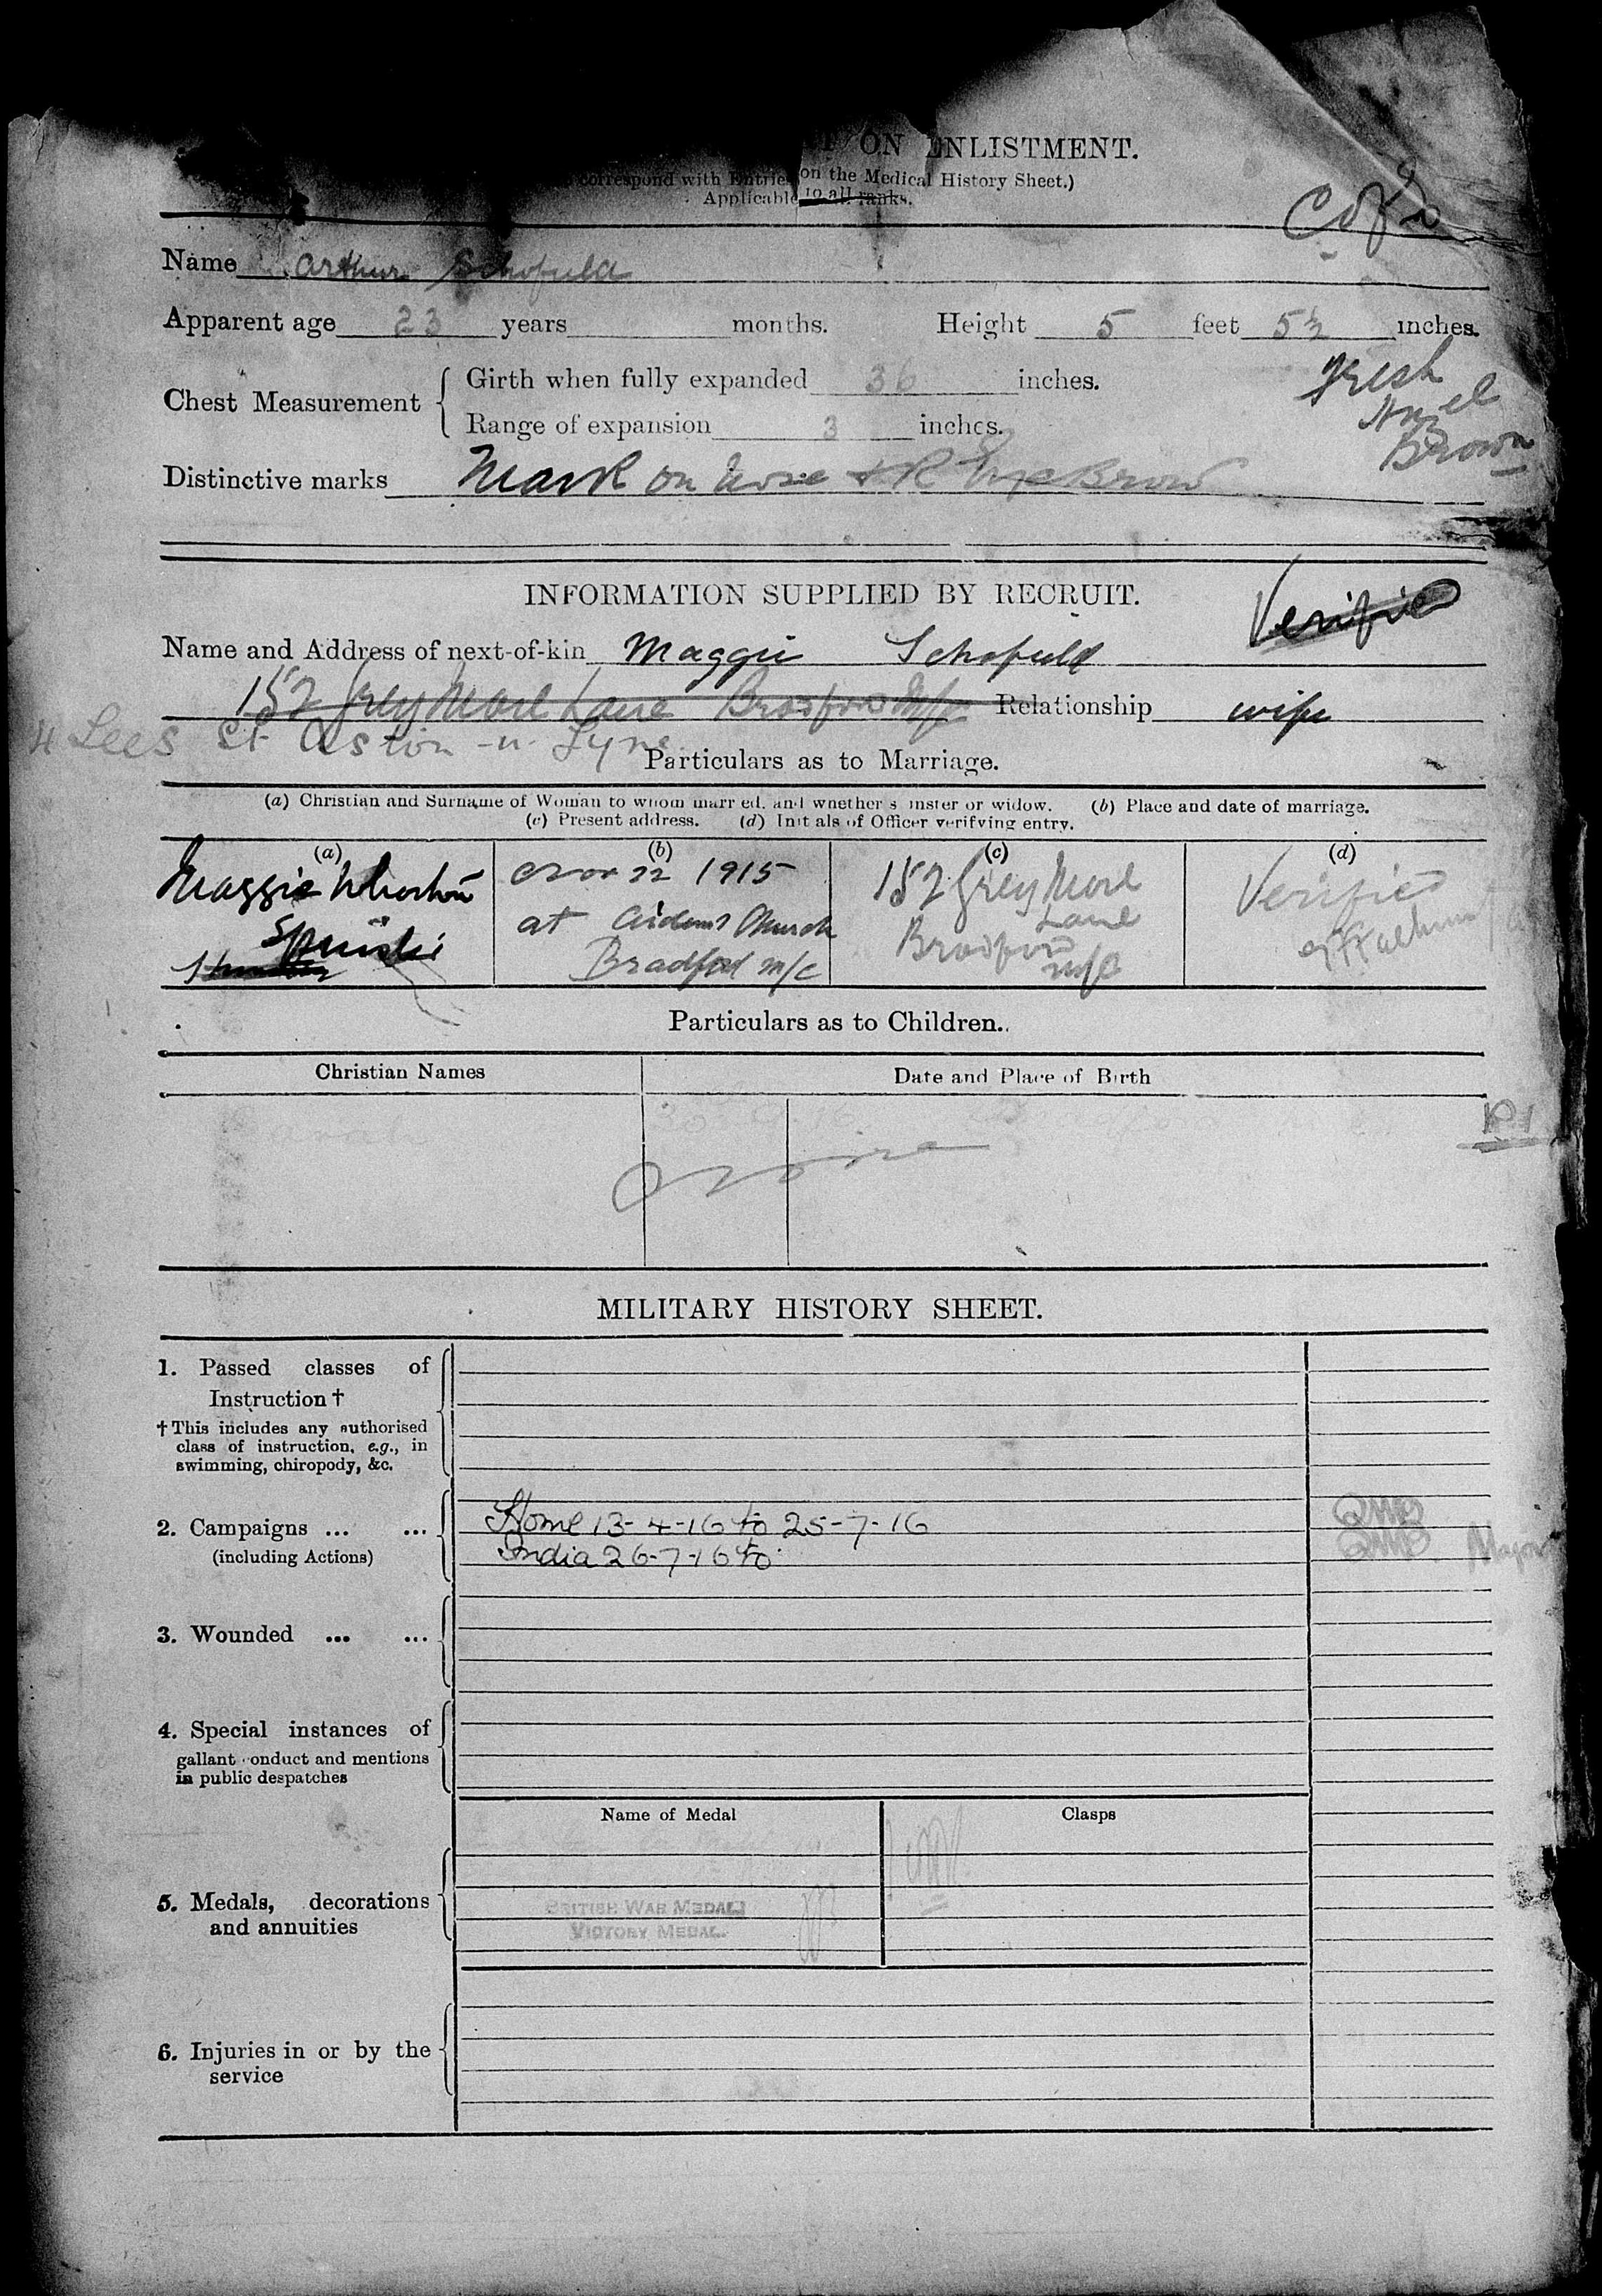 ON ENLISTMENT.
correspond with Entries on the Medical History Sheet.)
Applicable to all ranks.
C of E
Name Arthur Schofield
Apparent age 23 years months. Height 5 feet 5½ inches.
Chest Measurement { Girth when fully expanded 36 inches.
Range of expansion 3 inches.
Fresh
Hazel
Brown
Distinctive marks Mark on Nose & R Eye Brow
INFORMATION SUPPLIED BY RECRUIT.
Verified
Name and Address of next-of-kin Maggie Schofield
152 Grey Mare Lane Bradford M/c Relationship wife
4 Lees St Aston-u-Lyne
Particulars as to Marriage.
(a) Christian and Surname of Woman to whom married, and whether spinster or widow. (b) Place and date of marriage.
(c) Present address. (d) Initials of Officer verifying entry.
(a) (b) (c) (d)
Maggie Whorton
Spinster
Nov 22 1915
at Church
Bradford M/c
152 Grey Mare
Lane
Bradford
M/c
Verified
Particulars as to Children.
Christian Names Date and Place of Birth
None
MILITARY HISTORY SHEET.
1. Passed classes of
Instruction †
† This includes any authorised
class of instruction, e.g., in
swimming, chiropody, &c.
2. Campaigns ... ...
(including Actions)
Home 13-4-16 to 25-7-16
India 26-7-16 to
Major
3. Wounded ... ...
4. Special instances of
gallant conduct and mentions
in public despatches
Name of Medal Clasps
5. Medals, decorations
and annuities
BRITISH WAR MEDAL
VICTORY MEDAL.
6. Injuries in or by the
service